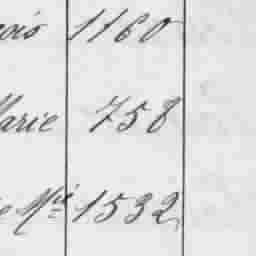 ois 1160
Marie 758
e Mie 1532